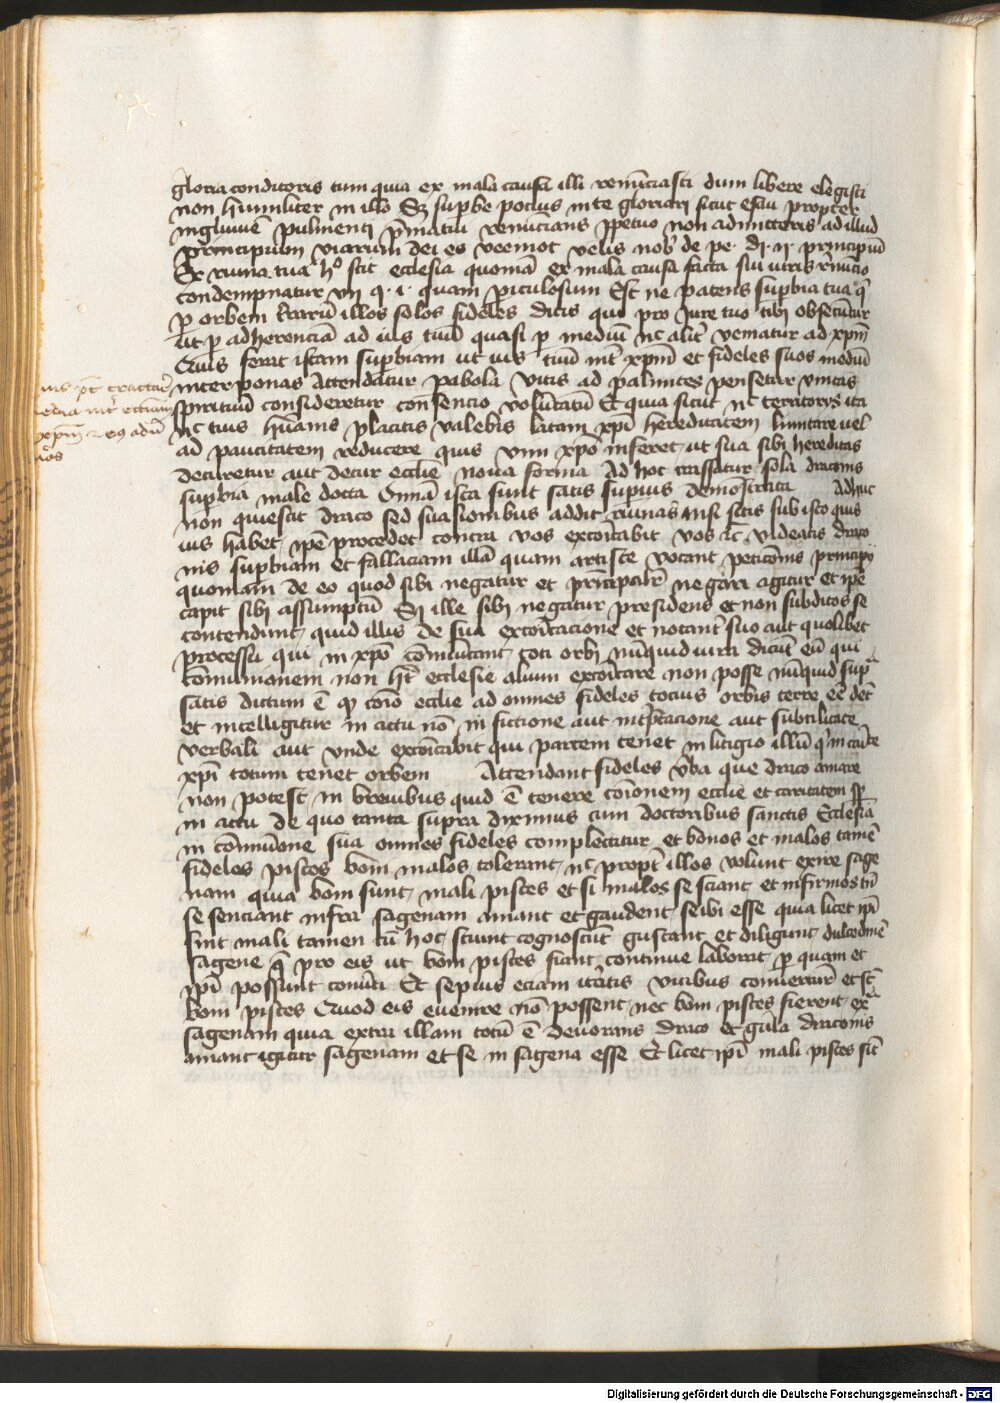 gloria conditoris tum quia ex mala causa illi renūciasti dum libere elegisti
non humiliter in illo Sꝫ supbe pocius in te gloriari sicut esau propter
ingluuiē pulmenti pmatui renūcians ppetuo non admitteris ad illud
principium vicarium dei eo veemot velis nob de pe. di. ii. principiū
Ex ruina tua h° scit ecclesia quoniā ex mala causa facta sui iuris rnūcio
condempnatur vii q. i. quam piculosum Est ne patens supbia tua q
p orbem terrarū illos solos fideles dicis qui pro iure tuo tibi obsecūtur
ut p adherenciā ad ius tuū quasi p mediū nc alit veniatur ad xpm
Quis ferat istam supbiam ut ius tuū int xpm et fideles suos mediū
interponas Attendatur pabola vitis ad palmites pensetur vnitas
spirituū consideretur consencio volūtatū Et quia sicut nc territoriis ita
nc tuis hūanis placitis valebis latam xpi hereditatem limitare uel
ad paucitatem reducere quis vim xpo inferet ut sua sibi hereditas
decuretur aut detur ecclie noua forma Ad hoc crassatur sola draconis
supbia male docta Oīna ista sunt satis supius demonstrata Adhuc
non quiescit draco sed suasionibus addit ruinas nisi sitis sub isto quis
ius habet ipe procedet contra vos excoicabit vos ac videatis draco
nis supbiam et fallaciam illā quam artiste vocant peticionis principij
quoniam de eo quod sibi negatur et principalr negari agitur et ipe
capit sibi assumptū Si ille sibi negatur presidens et non subditos se
contendunt quid illis de sua excoicacione et notant suo aut quolibet
processu qui in xpo comūicant toti orbi nūquid vita dicūt eū qui
comunionem non ht ecclesie alium excoicare non posse nūquid sup
satis dictum ē q coio ecclie ad omnes fideles tocius orbis terre eē det
et intelligitur in actu nō in fictione aut intptacione aut subtilitate
verbali aut vnde excoicabit qui partem tenet in litigio illū q in caritate
xpi totum tenet orbem Attendant fideles vba que draco amare
non potest in breuibus quid ē tenere coionem ecclie et caritatem sp
in actu de quo tanta supra diximus cum doctoribus sanctis Ecclesia
in comūione sua omnes fideles complectitur et bonos et malos tamē
fideles pisces boni malos tolerant nc propt illos volunt exire sage
nam quia boni sunt mali pisces et si malos se sciant et infirmos tn
se senciant infra sagenam amant et gaudent seibi esse quia licet ipi
sint mali tamen tn hoc sciunt cognoscūt gustant et diligunt dulcedinē
sagene q pro eis ut boni pisces fiant continue laborat p quam et
ipi possunt conuti Et sepius eciam itatis viribus conuertūt et st
boni pisces Quod eis euenire nō possent nec boni pisces fierent ex
sagenam quia extra illam totū ē deuorans draco et gula draconis
amant igitur sagenam et se in sagena esse Et licet ipi mali pisces sīt
Digitalisierung gefördert durch die Deutsche Forschungsgemeinschaft - DFG